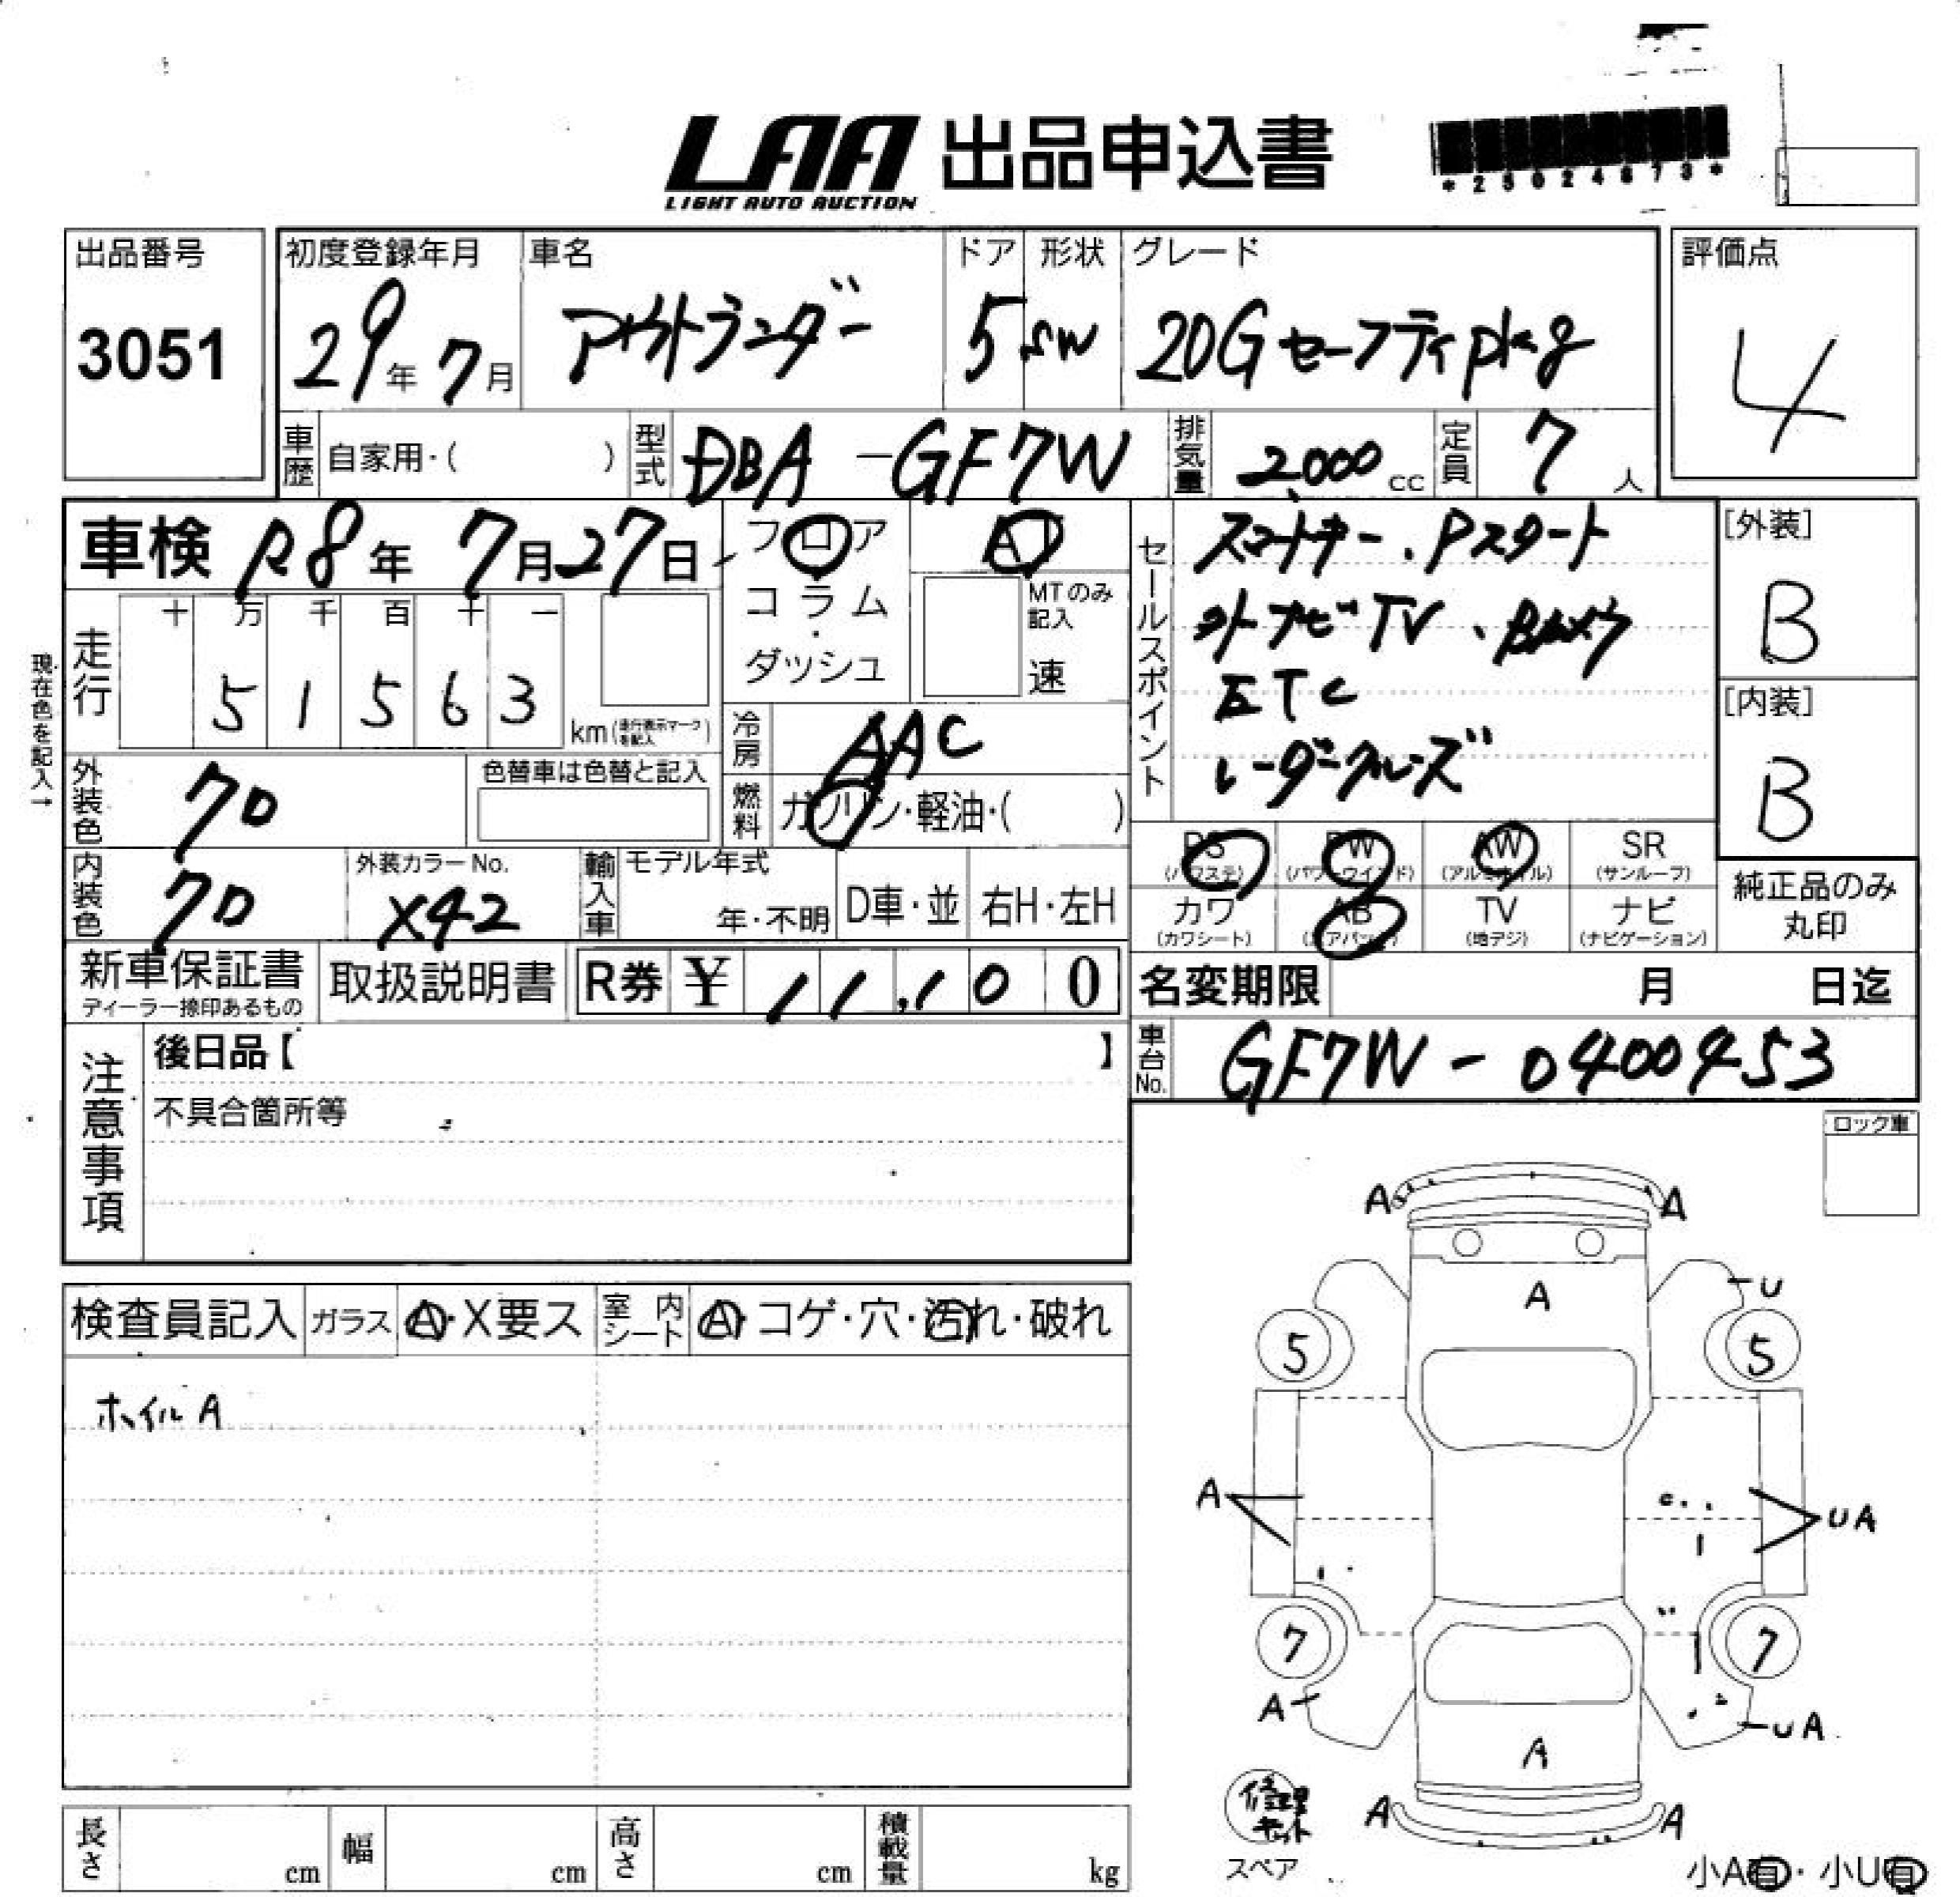 LAA 出品申込書
LIGHT AUTO AUCTION
出品番号
3051
初度登録年月
29年 7月
車名
アウトランダー
ドア
5
形状
SW
グレード
20GセーフティPkg
評価点
4
車歴
自家用・( )
型式
DBA-GF7W
排気量
2,000 cc
定員
7人
車検 R8年 7月27日
フロア
コラム
・
ダッシュ
MTのみ記入
速
走行
十 万 千 百 十 一
5 1 5 6 3
km(走行表示マークを記入)
現在色を記入→
外装色
クロ
色替車は色替と記入
冷房
AAC
燃料
ガソリン・軽油・( )
内装色
クロ
外装カラーNo.
X42
輸入車
モデル年式
年・不明
D車・並
右H・左H
セールスポイント
スマートキー、Pスタート
ナビTV、Bカメラ
ETC
レーダークルーズ
[外装]
B
[内装]
B
PS
(パワステ)
PW
(パワーウインド)
AW
(アルミホイル)
SR
(サンルーフ)
カワ
(カワシート)
AB
(エアバッグ)
TV
(地デジ)
ナビ
(ナビゲーション)
純正品のみ
丸印
新車保証書
ディーラー捺印あるもの
取扱説明書
R券 ¥ 11,100
名変期限 月 日迄
車台No.
GF7W-0400453
注意事項
後日品【 】
不具合箇所等
ロック車
検査員記入
ガラス
A・X要ス
室内シート
A・コゲ・穴・汚れ・破れ
ホイルA
A A
A
U
5 5
A
UA
7 7
A
UA
A
A A
修理キット
スペア
小A有・小U有
長さ cm
幅 cm
高さ cm
積載量 kg